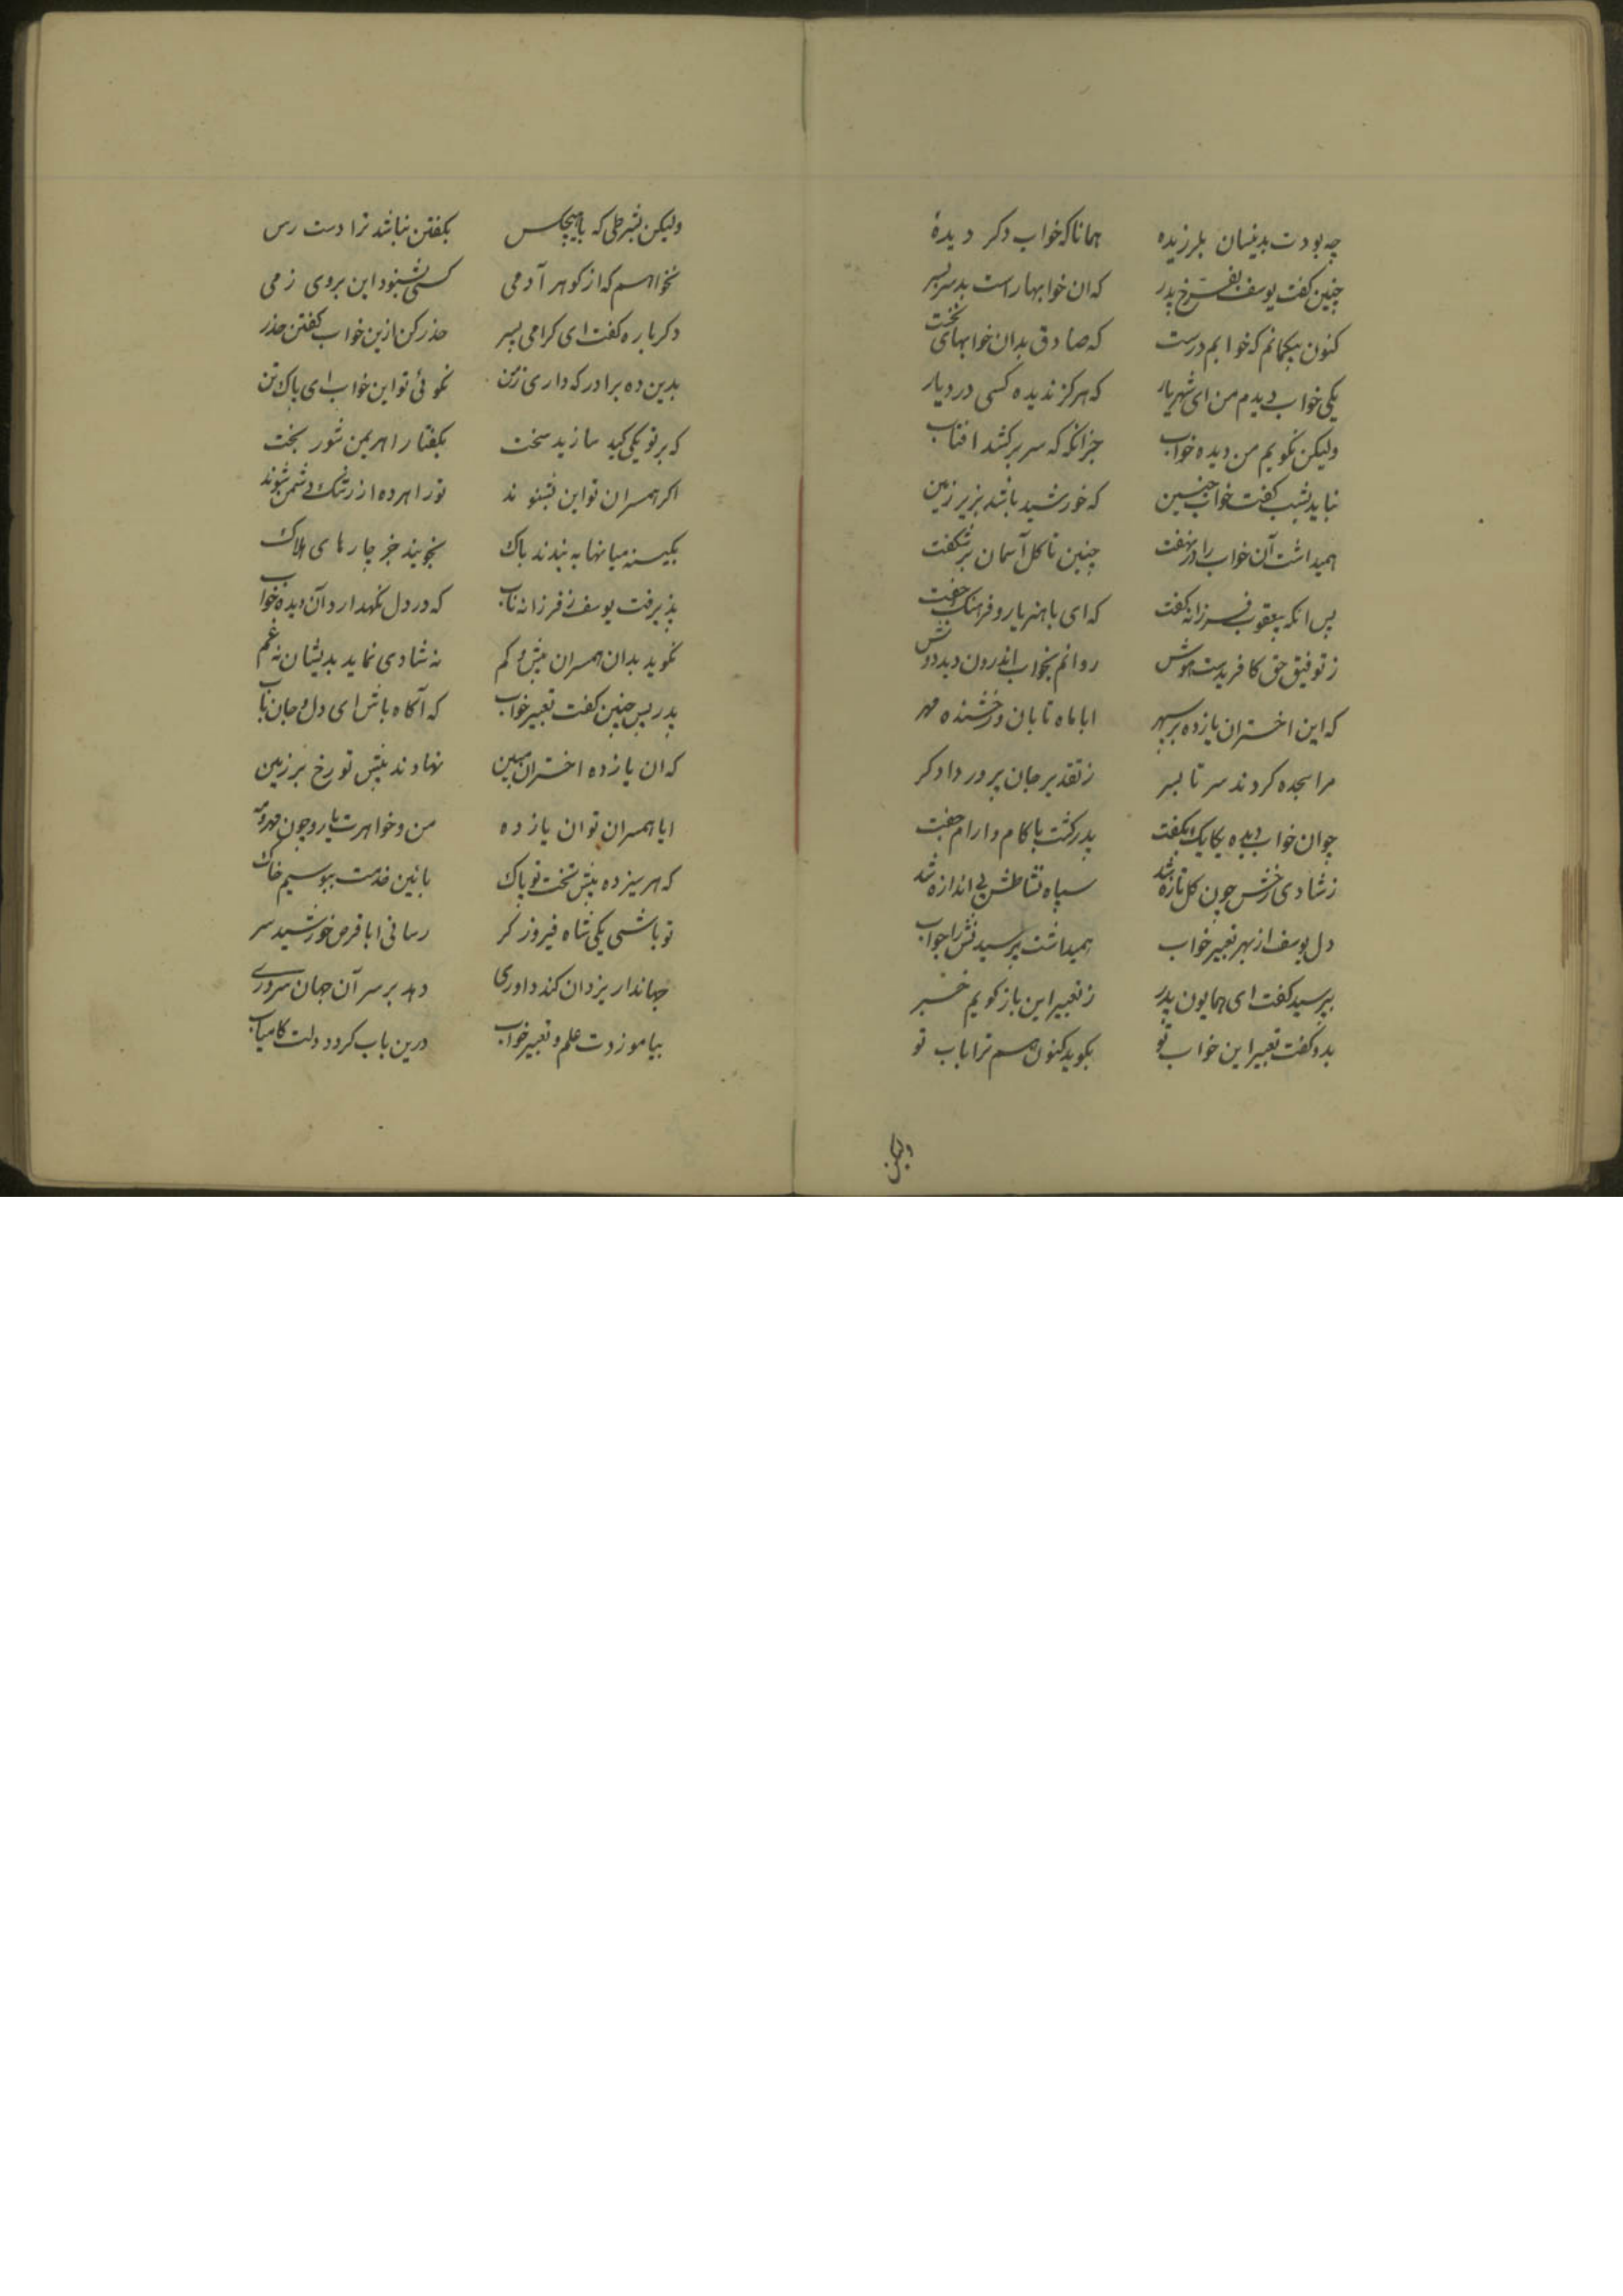 چه بودت بدینسان بلرزیده همانا که خواب دکر دیدهٔ
چنین کفت یوسف بفرخ پدر که ان خوابها راست بد سر بسر
کنون بیکمانم که خوابم درست که صادق بدان خوابهای نخست
یکی خواب دیدم من ای شهریار که هرکز ندیده کسی در دیار
ولیکن نکویم من دیده خواب جز انکه که سر برکشد افتاب
نباید بشب کفت خواب چنین که خورشید باشد بزیر زمین
همیداشت آن خواب را در نهفت چنین تا کل آسمان بر شکفت
پس انکه بیعقوب فرزانه کفت که ای با هنر یار و فرهنک جفت
ز توفیق حق کافریدست هوش روانم بخواب اندرون دید دوش
که این اختران یازده بر سپهر ابا ماه تابان و رخشنده مهر
مرا سجده کردند سر تا بسر ز تقدیر جان پرور دادکر
چو ان خواب دیده یکایک بکفت پدر کشت با کام و ارام جفت
ز شادی رخش چون کل تازه شد سپاه نشاطش بی اندازه شد
دل یوسف از بهر تعبیر خواب همیداشت پرسیدنش را جواب
بپرسید کفت ای همایون پدر ز تعبیر این باز کویم خبر
بدو کفت تعبیر این خواب تو بکوید کنون هم ترا باب تو
ولیکن
ولیکن بشرطی که با هیچکس بکفتن نباشد ترا دست رس
نخواهم که از کوهر آدمی کسی بشنود این بروی زمی
دکر باره کفت ای کرامی پسر حذر کن ازین خواب کفتن حذر
بدین ده برادر که داری ز من نکوئی تو این خواب ای پاک تن
که بر تو یکی کید سازید سخت بکفتار اهریمن شور بخت
اکر همسران تو این بشنوند تو را هر ده از رشک دشمن شوند
بکینه میانها به بندند پاک نجویند جز چارهای هلاک
پذیرفت یوسف ز فرزانه ناب که در دل نکهدارد آن دیده خواب
نکوید بدان همسران بیش و کم نه شادی نماید بدیشان نه غم
پدر پس چنین کفت تعبیر خواب که آکاه باش ای دل و جان باب
که ان یازده اختران مبین نهادند پیش تو رخ بر زمین
ابا همسران تو ان یازده من و خواهرت یار و چون مهر و مه
که هر سیزده پیش تخت تو پاک بائین خدمت ببوسیم خاک
تو باشی یکی شاه فیروز کر رسانی ابا قرص خورشید سر
جهاندار یزدان کند داوری دهد بر سر آن جهان سروری
بیاموزدت علم و تعبیر خواب درین باب کردد دلت کامیاب